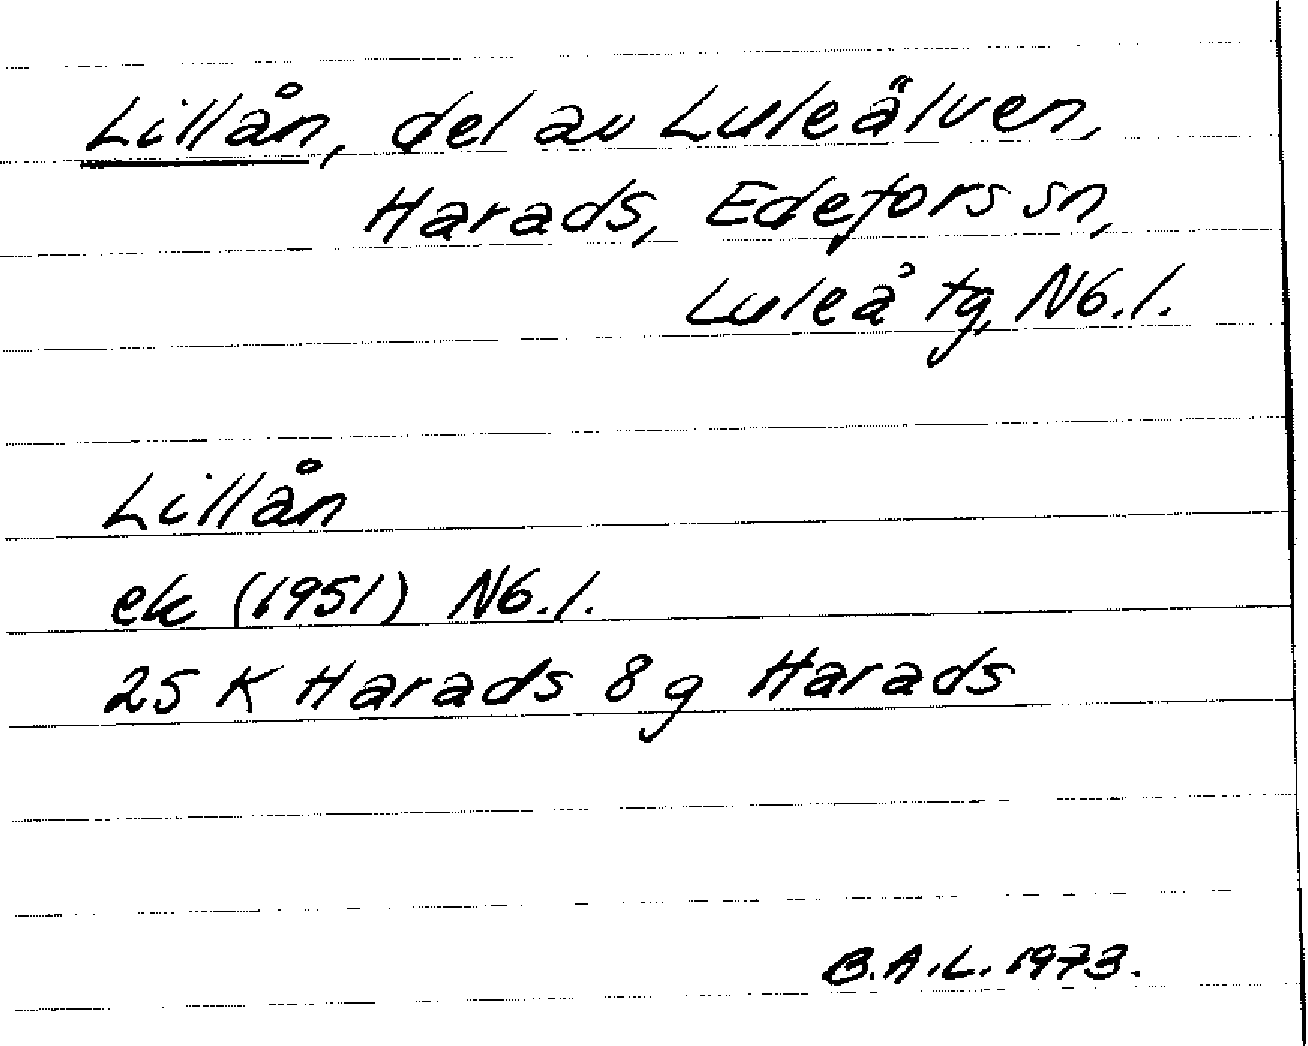 Lillån, del av Luleälven,
Harads, Edefors sn,
Luleå tg, Nb.l.
Lillån
ek (1951) Nb.l.
25 K Harads 8g Harads
B.A.L. 1973.